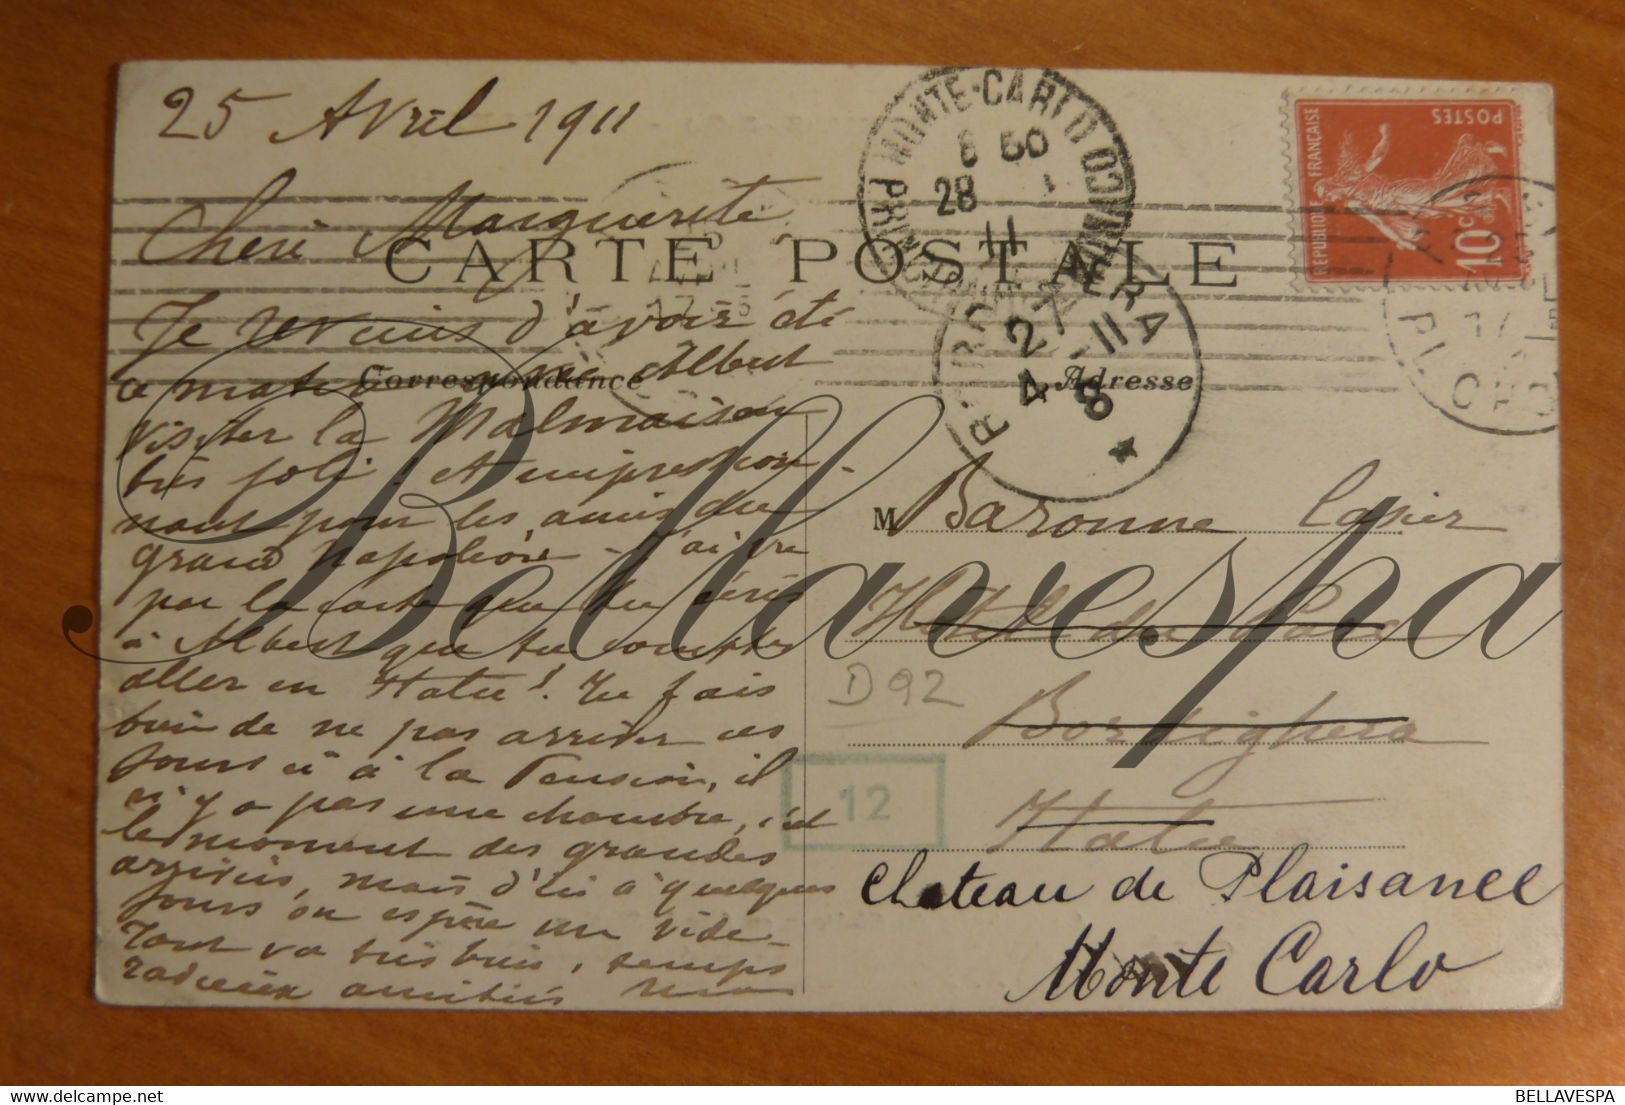 25 Avril 1911
Cheri Marguerite
Je reviens d'avoir été
ce matin avec Albert
visiter la Malmaison
très joli! et impression-
nant pour les amis du
grand Napoléon - J'ai vu
par la carte que tu écris
à Albert que tu comptes
aller en Italie! Tu fais
bien de ne pas arriver ces
jours ci à la Pension, il
n'y a pas une chambre, c'est
le moment des grandes
arrivées, mais d'ici à quelques
jours on espère un vide-
Tout va très bien, temps
radieux amitiés
CARTE POSTALE
Correspondance
Adresse
M Baronne
Hotel du Parc
Bordighera
Italie
Chateau de Plaisance
Monte Carlo
D92
12
MONTE-CARLO
28
11
27
4-11
8
RÉPUBLIQUE FRANÇAISE
POSTES
10c
Bellavespa
BELLAVESPA